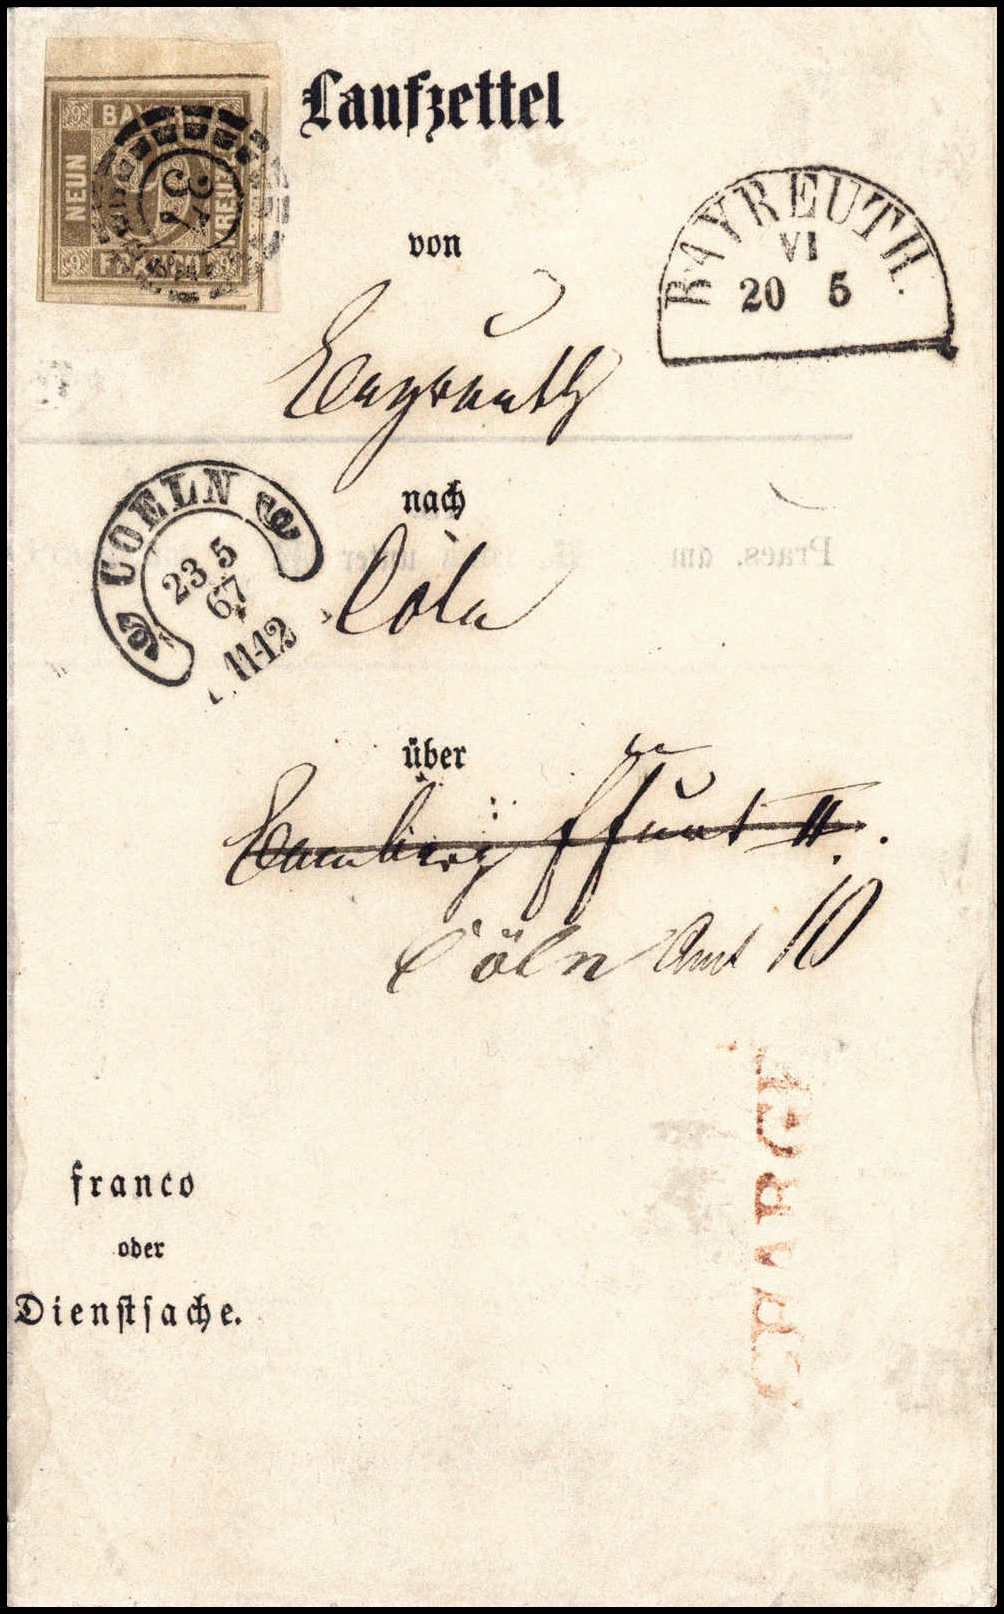 BAYERN
NEUN
KREUZER
FRANCO
9
37
Laufzettel
BAYREUTH.
VI
20 5
von
Bayreuth
nach
Cöln
COELN
23 5
67
11-12
Praes. am
über
Bamberg Ffurt II.
Cöln Amt 10
franco
oder
Dienstsache.